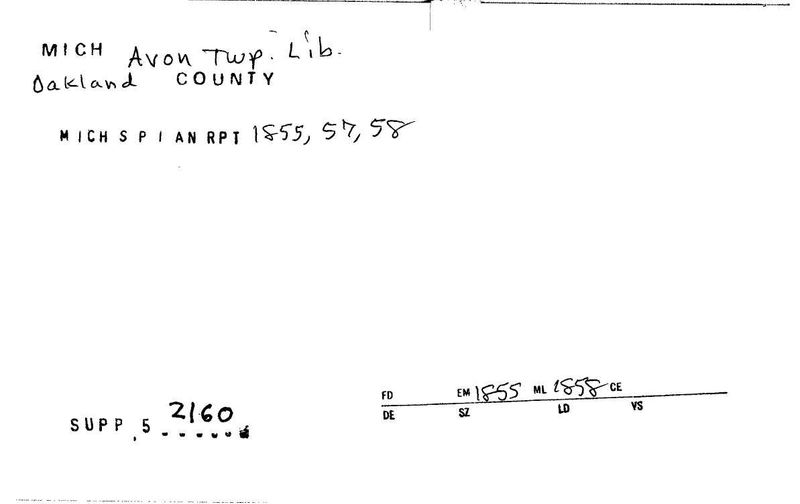 MICH Avon Twp. Lib.
Oakland COUNTY
MICH S P I AN RPT 1855, 57, 58
FD EM 1855 ML 1858 CE
DE SZ LD VS
2160
SUPP .5